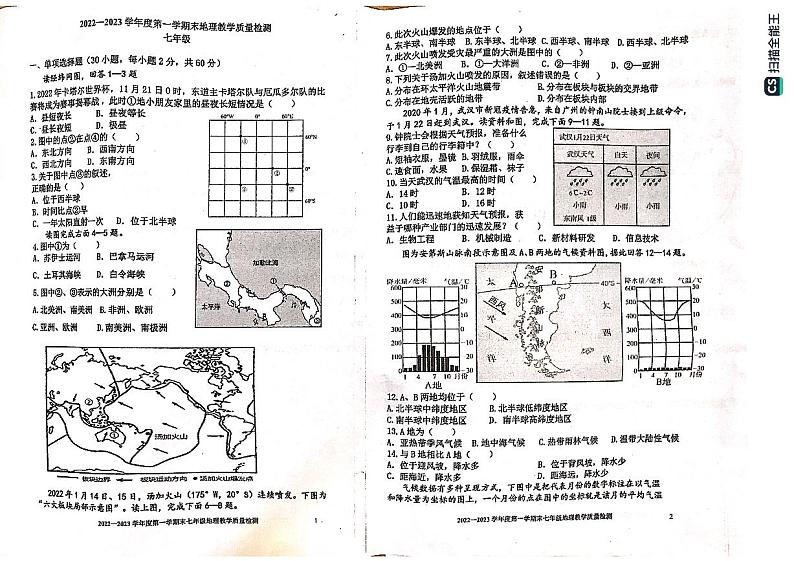 2022—2023学年度第一学期末地理教学质量检测
七年级
一、单项选择题（30小题，每小题2分，共60分）
读经纬网图，回答1—3题
1.2022年卡塔尔世界杯，11月21日0时，东道主卡塔尔队与厄瓜多尔队的比
赛将成为赛事揭幕战，此时①地小朋友家里的昼夜长短情况是（ ）
A. 昼短夜长 B. 昼夜等长
C. 昼长夜短 D. 极昼
2.图中的点③在点④的（ ）
A. 东北方向 B. 西南方向
C. 西北方向 D. 东南方向
3.关于图中点③的叙述，
正确的是（ ）
A. 位于西半球
B. 时间比点②早
C. 一年太阳直射一次 D. 位于北半球
60°W 0° 60°E
60°N
0°
60°S
①
②
③
读图完成右面4—5题。
4.图中①为（ ）
A. 苏伊士运河 B. 巴拿马运河
C. 土耳其海峡 D. 白令海峡
5.图中②、③表示的大洲分别是（ ）
A.北美洲、南美洲 B.非洲、欧洲
C.亚洲、欧洲 D.南美洲、南极洲
加勒比海
太平洋
①
②
③
汤加火山
①
②
板块边界 板块运动方向 汤加火山爆发点
2022年1月14日、15日，汤加火山（175°W，20°S）连续喷发。下图为
“六大板块局部示意图”。读上图，完成下面6—8题。
2022—2023学年度第一学期末七年级地理教学质量检测 1
6.此次火山爆发的地点位于（ ）
A.东半球、南半球 B.东半球、北半球 C.西半球、南半球 D.西半球、北半球
7.此次火山喷发受灾最严重的大洲是图中的（ ）
A. ①—北美洲 B. ①—大洋洲 C. ②—非洲 D. ②—亚洲
8.下列关于汤加火山喷发的原因，叙述错误的是（ ）
A.分布在环太平洋火山地震带 B.分布在板块与板块的交界地带
C.分布在地壳活跃的地带 D.分布在板块内部
2020年1月，武汉市新冠疫情告急，来自广州的钟南山院士接到上级命令，
于1月22日赶到武汉。读资料和图，完成下面9—11题。
9.钟院士会根据天气预报，准备什么
行李到自己的行李箱中？（ ）
A.短袖衣服，墨镜 B.羽绒服，雨伞
C.速食面，水果 D.保湿霜、袜子
10.当天武汉的气温最高的时间（ ）
A. 14时 B. 12时
C. 10时 D. 16时
11.人们能迅速地获知天气预报，获
益于哪种产业部门的迅速发展？（ ）
A. 生物工程 B. 机械制造 C. 新材料研发 D. 信息技术
武汉1月22日天气
武汉天气 白天 夜间
6℃~2℃
小雨 小雨 小雨
东南风 1级
图为安第斯山脉南段示意图及A、B两地的气候资料图，据此回答12—14题。
降水量/毫米 气温/℃
600 30
500 20
400 10
300 0
200 -10
100 -20
0 -30
1 4 7 10 月份
A地
太
平
洋
西风
A B
40°S
大
西
洋
降水量/毫米 气温/℃
600 30
500 20
400 10
300 0
200 -10
100 -20
0 -30
1 4 7 10 月份
B地
12.A、B两地均位于（ ）
A.北半球中纬度地区 B.北半球低纬度地区
C.南半球中纬度地区 D.南半球高纬度地区
13.A地为（ ）
A. 亚热带季风气候 B.地中海气候 C.热带雨林气候 D.温带大陆性气候
14.与B地相比A地（ ）
A. 位于迎风坡，降水多 B. 位于背风坡，降水少
C. 距海近，降水多 D. 距海远，降水少
气候数据有多种呈现方式，下图中是把代表月份的数字标注在以气温
和降水量为坐标的图上，一个月份的点在图中的坐标就是该月的平均气温
2022—2023学年度第一学期末七年级地理教学质量检测 2
CS 扫描全能王